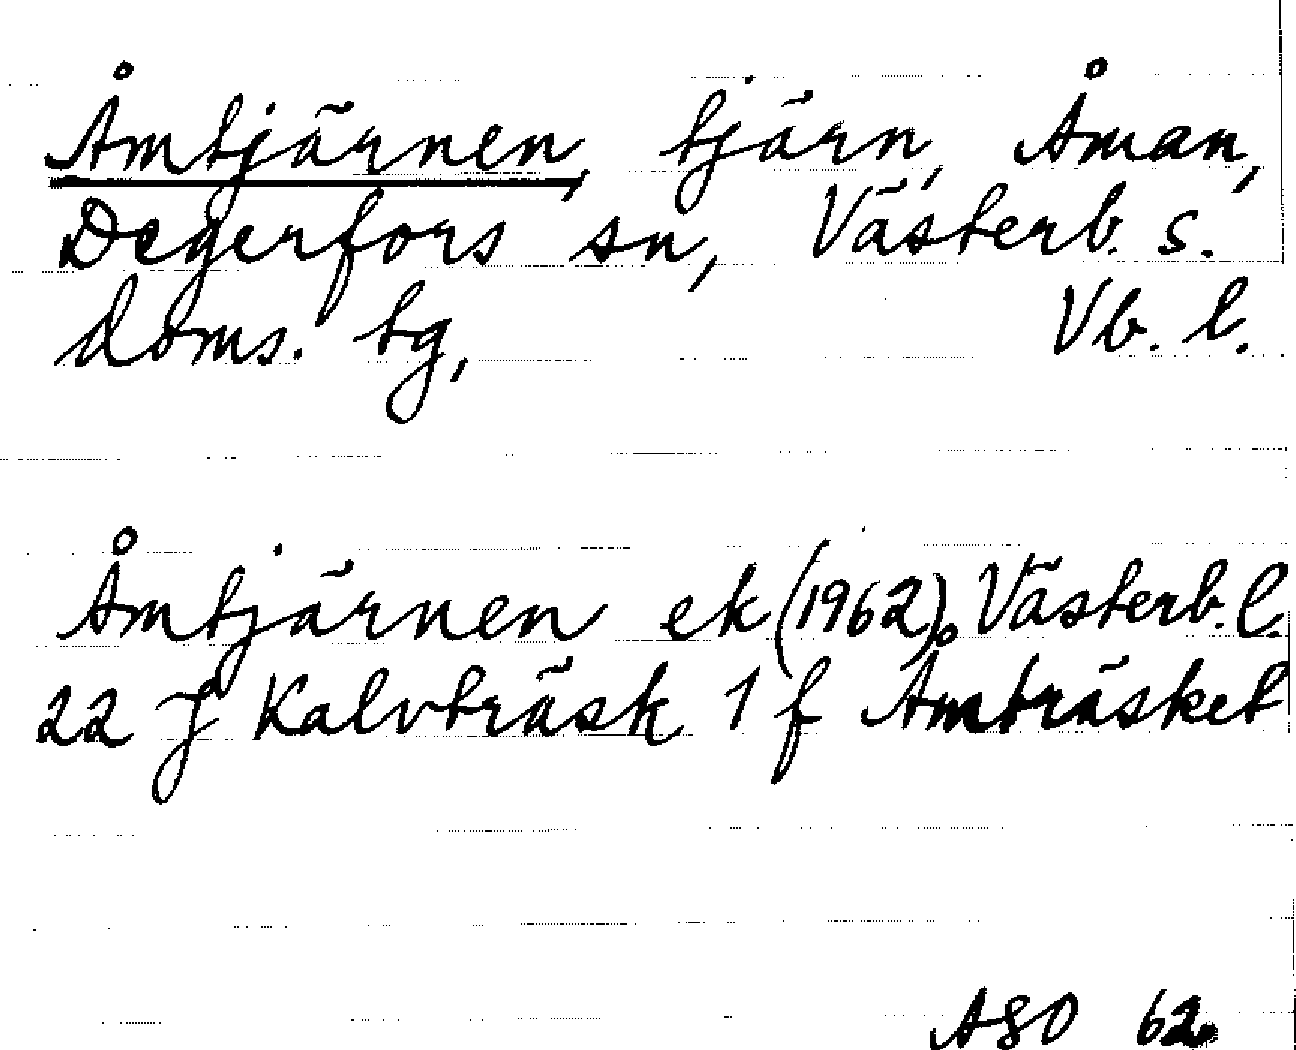 Åmtjärnen, tjärn, Åman,
Degerfors sn, Västerb. s.
doms. tg, Vb. l.
Åmtjärnen ek (1962). Västerb. l.
22 J Kalvträsk 1 f Åmträsket
ASO 62